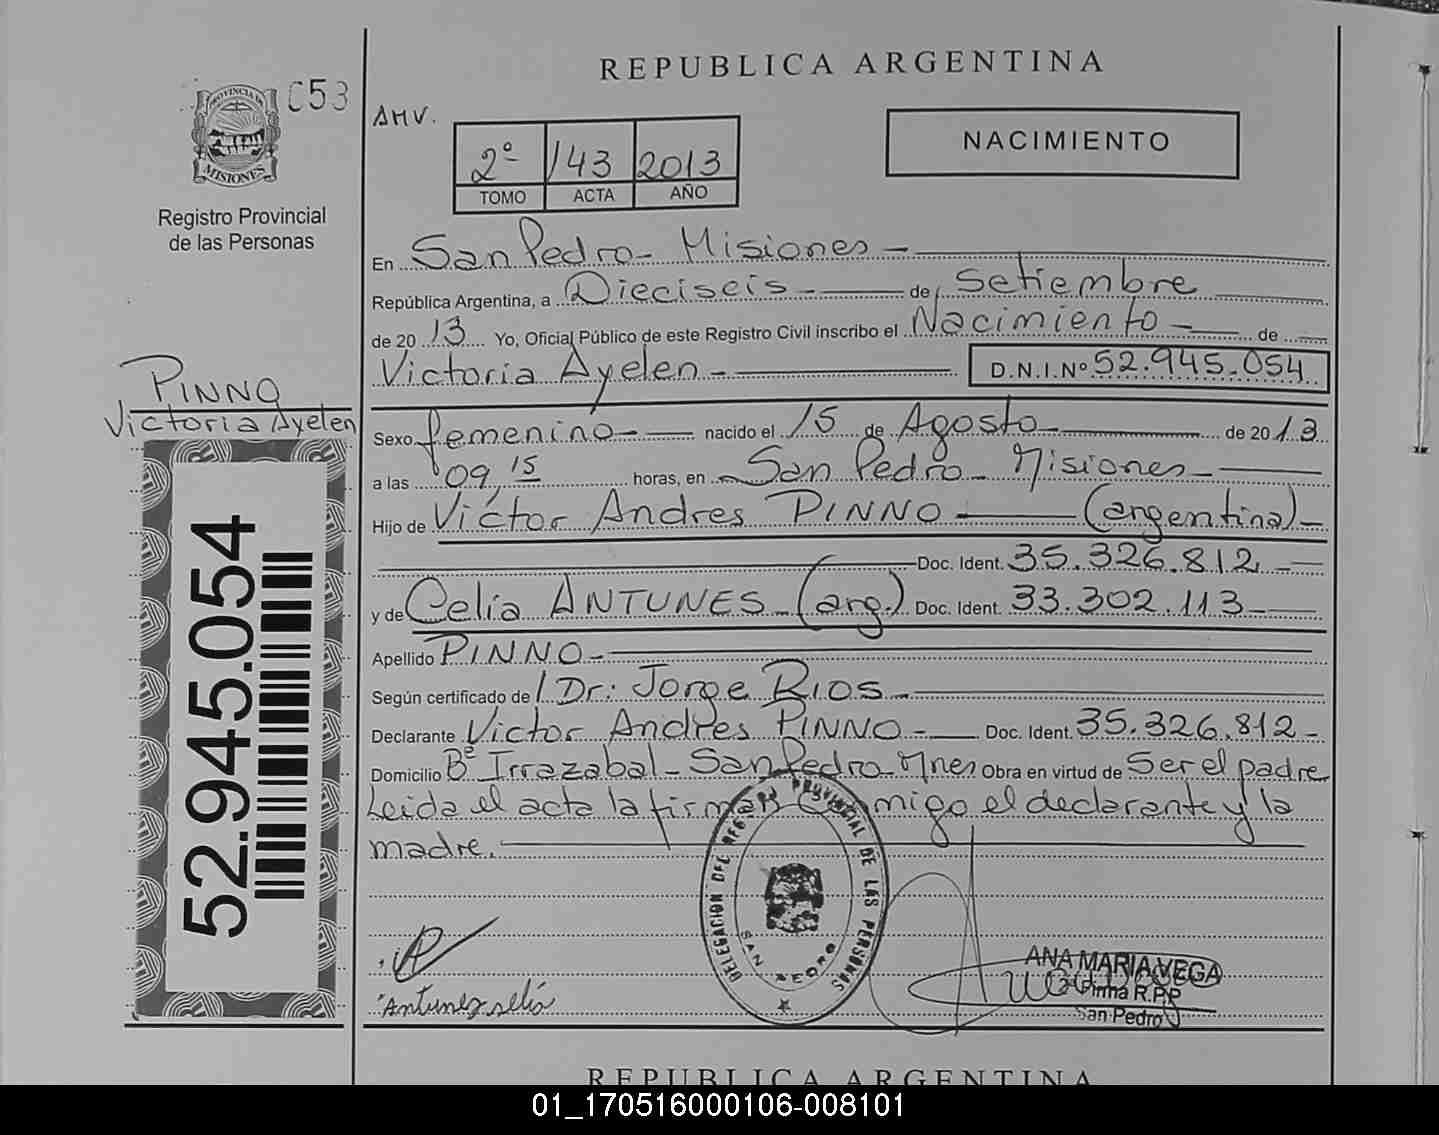 REPUBLICA ARGENTINA
C53
AMV.
PROVINCIA DE MISIONES
Registro Provincial
de las Personas
2º 143 2013
TOMO ACTA AÑO
NACIMIENTO
En San Pedro - Misiones -
República Argentina, a Dieciseis - de Setiembre
de 20 13 Yo, Oficial Público de este Registro Civil inscribo el Nacimiento - de
Victoria Ayelen - D.N.I.Nº 52.945.054
PINNO
Victoria Ayelen
Sexo femenino - nacido el 15 de Agosto - de 20 13
a las 09,15 horas, en San Pedro - Misiones -
Hijo de Víctor Andres PINNO - (argentina) -
Doc. Ident. 35.326.812 -
y de Celia ANTUNES - (arg.) Doc. Ident. 33.302.113 -
Apellido PINNO -
Según certificado de Dr: Jorge Rios -
Declarante Víctor Andres PINNO - Doc. Ident. 35.326.812 -
Domicilio Bº Irrazabal - San Pedro - Mnes Obra en virtud de Ser el padre
Leida el acta la firman conmigo el declarante y la
madre.
52.945.054
DELEGACION DEL REGISTRO PROVINCIAL DE LAS PERSONAS
SAN PEDRO
ANA MARIA VEGA
Firma R.P.P
San Pedro
Antunez selia
REPUBLICA ARGENTINA
01_170516000106-008101